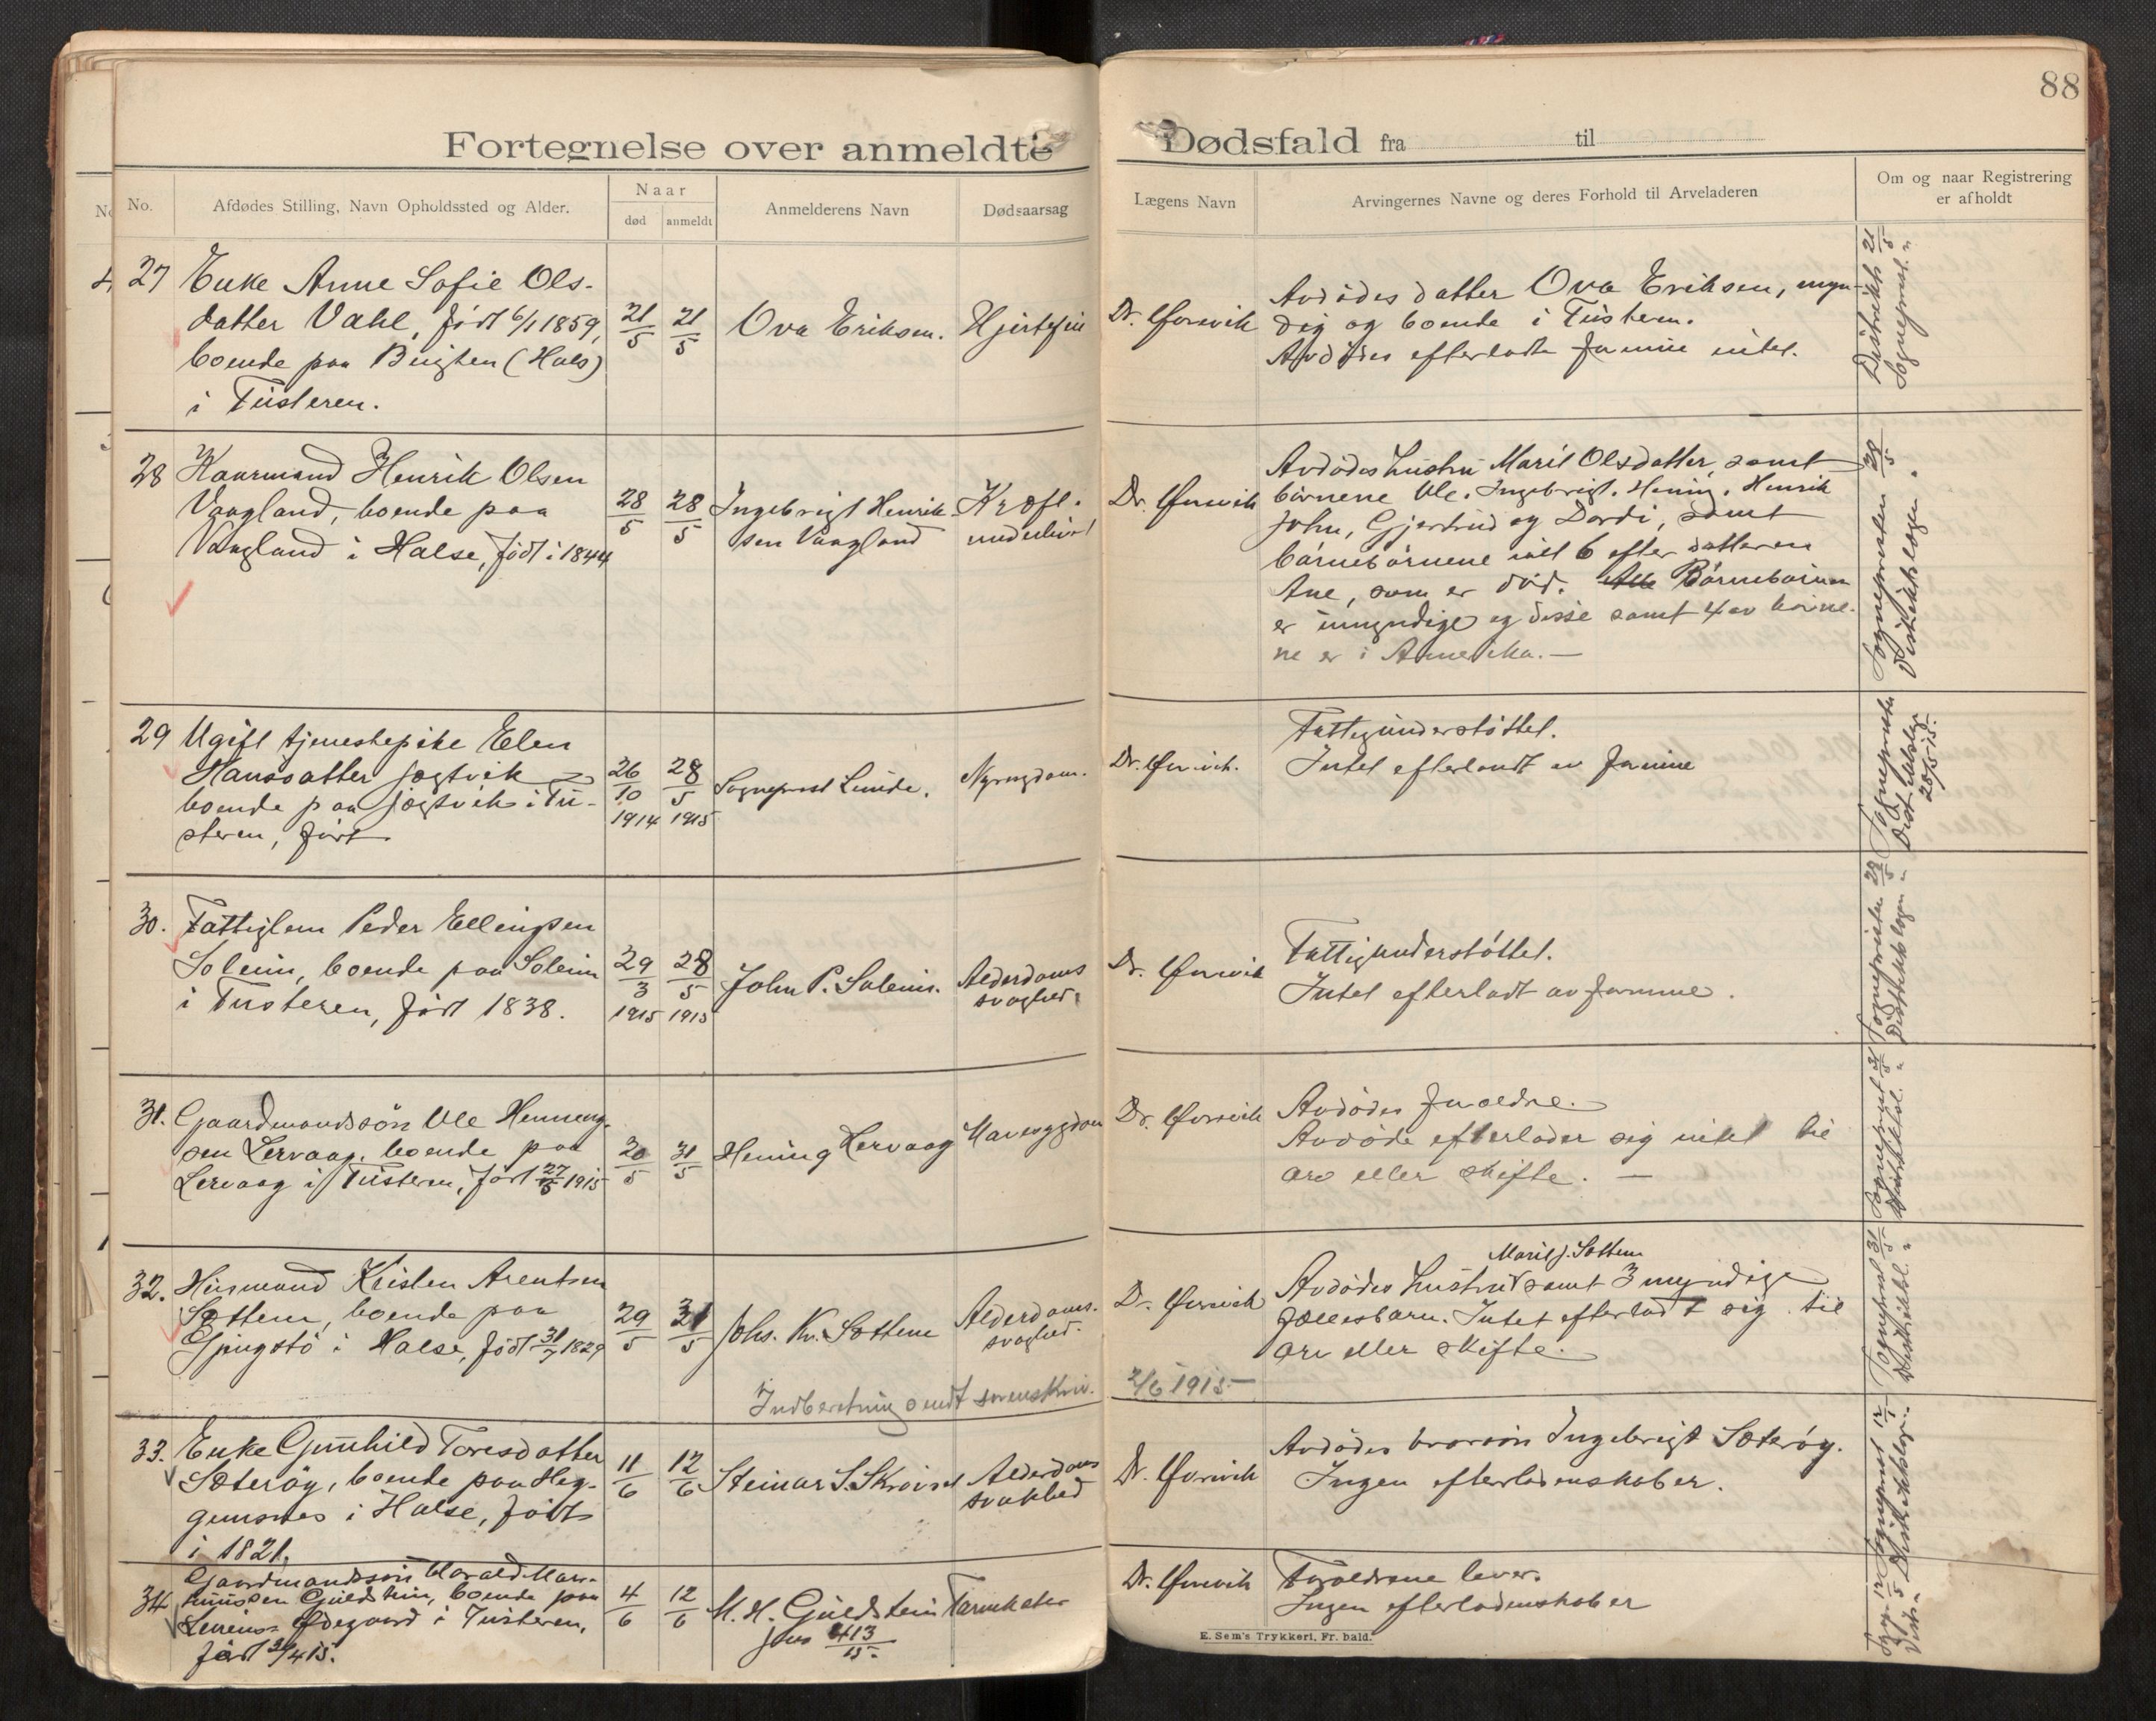 88
Fortegnelse over anmeldte Dødsfald fra til
No.
Afdødes Stilling, Navn Opholdssted og Alder.
Naar
død
anmeldt
Anmelderens Navn
Dødsaarsag
Lægens Navn
Arvingernes Navne og deres Forhold til Arveladeren
Om og naar Registrering
er afholdt
27
Enke Anne Sofie Ols-
datter Vahl, født 6/1 1859,
boende paa (Hals)
i Tusteren.
21/5
21/5
Ova Eriksen.
Dr. Ørsvik
Avdødes datter Ova Eriksen, myn-
dig og boende i Tusteren.
Avdødes efterlodte formue intet.
Distrikts 21/5
Sogneprest. "
28
Kaarmand Henrik Olsen
Vaagland, boende paa
Vaagland i Halse, født i 1844
28/5
28/5
Ingebrigt Henrik-
sen Vaagland
Kræft.
underlivet
Dr. Ørsvik
Avdødes hustru Marit Olsdatter, samt
børnene Ole. Ingebrigt. Hening. Henrik
John, Gjertrud og Dordi, samt
barnebørnene ialt 6 efter datteren
Ane, som er død. Alle Børnebørnene
er umyndige og disse samt 4 av børne-
ne er i Amerika. —
Sognepresten 28/5
Distriktslægen "
29
Ugift tjenestepike Elen
Hansdatter Jægtvik
boende paa Jægtvik i Tu-
steren, født
26/10 1914
28/5 1915
Sogneprest Lunde.
Nyresygdom.
Dr. Ørsvik.
Fattigunderstøttet.
Intet efterladt av formue
Sognepresten
Distriktslæge
28/5 15.
30.
Fattiglem Peder Ellingsen
Soleim, boende paa Soleim
i Tusteren, født 1838.
29/3 1915
28/5 1915
John P. Soleim.
Alderdoms
svaghed.
Dr. Ørsvik
Fattigunderstøttet.
Intet efterladt av formue.
Sognepresten 28/5
Distriktslægen "
31.
Gaardmandssøn Ole Henning-
sen Lervaag, boende paa
Lervaag i Tusteren, født 27/5 1915
30/5
31/5
Hening Lervaag
Mavesygdom
Dr. Ørsvik
Avdødes foreldre.
Avdøde efterlader sig intet til
arv eller skifte. —
Sogneprest 31/5
Distriktsl. "
32.
Husmand Kristen Arentsen
Sættem, boende paa
Gjengstø i Halse, født 31/7 1829
29/5
31/5
Johs. Kr. Sættem
Alderdoms.
svaghed.
Dr. Ørsvik
Marit J. Sættem
Avdødes hustru samt 3 myndige
fællesbarn. Intet efterladt sig til
arv eller skifte.
Sogneprest 31/5
Distriktsl. "
Indberetning sendt sorenskriv. 2/6 1915 —
33.
Enke Gunhild Toresdatter
Sæterøy, boende paa Heg-
gumsnes i Halse, født
i 1821.
11/6
12/6
Steinar S. Skrøvset
Alderdoms
svakhed
Dr. Ørsvik
Avdødes brorsøn Ingebrigt Sæterøy.
Ingen efterladenskaber.
Sogneprest 12/
Distriktslægen. "
34
Gaardmandssøn Harald Mag-
nussen Guldstein, boende paa
Ødegaard i Tusteren,
født 30/4 15.
4/6
12/6
M. H. Guldstein
Jnr 413/15.
Tarmkatar
Dr. Ørsvik
Forældrene lever.
Ingen efterladenskaber
Sogn. 12/
Distr. "
E. Sem's Trykkeri, Fr.hald.